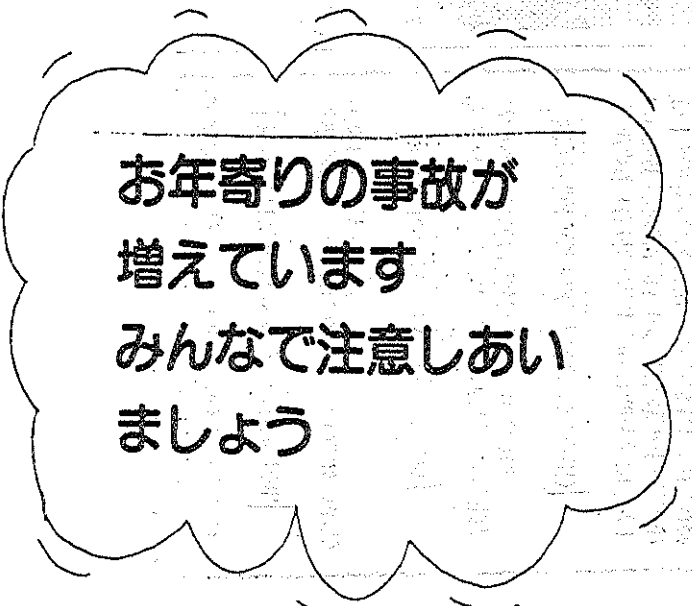 お年寄りの事故が
増えています
みんなで注意しあい
ましょう